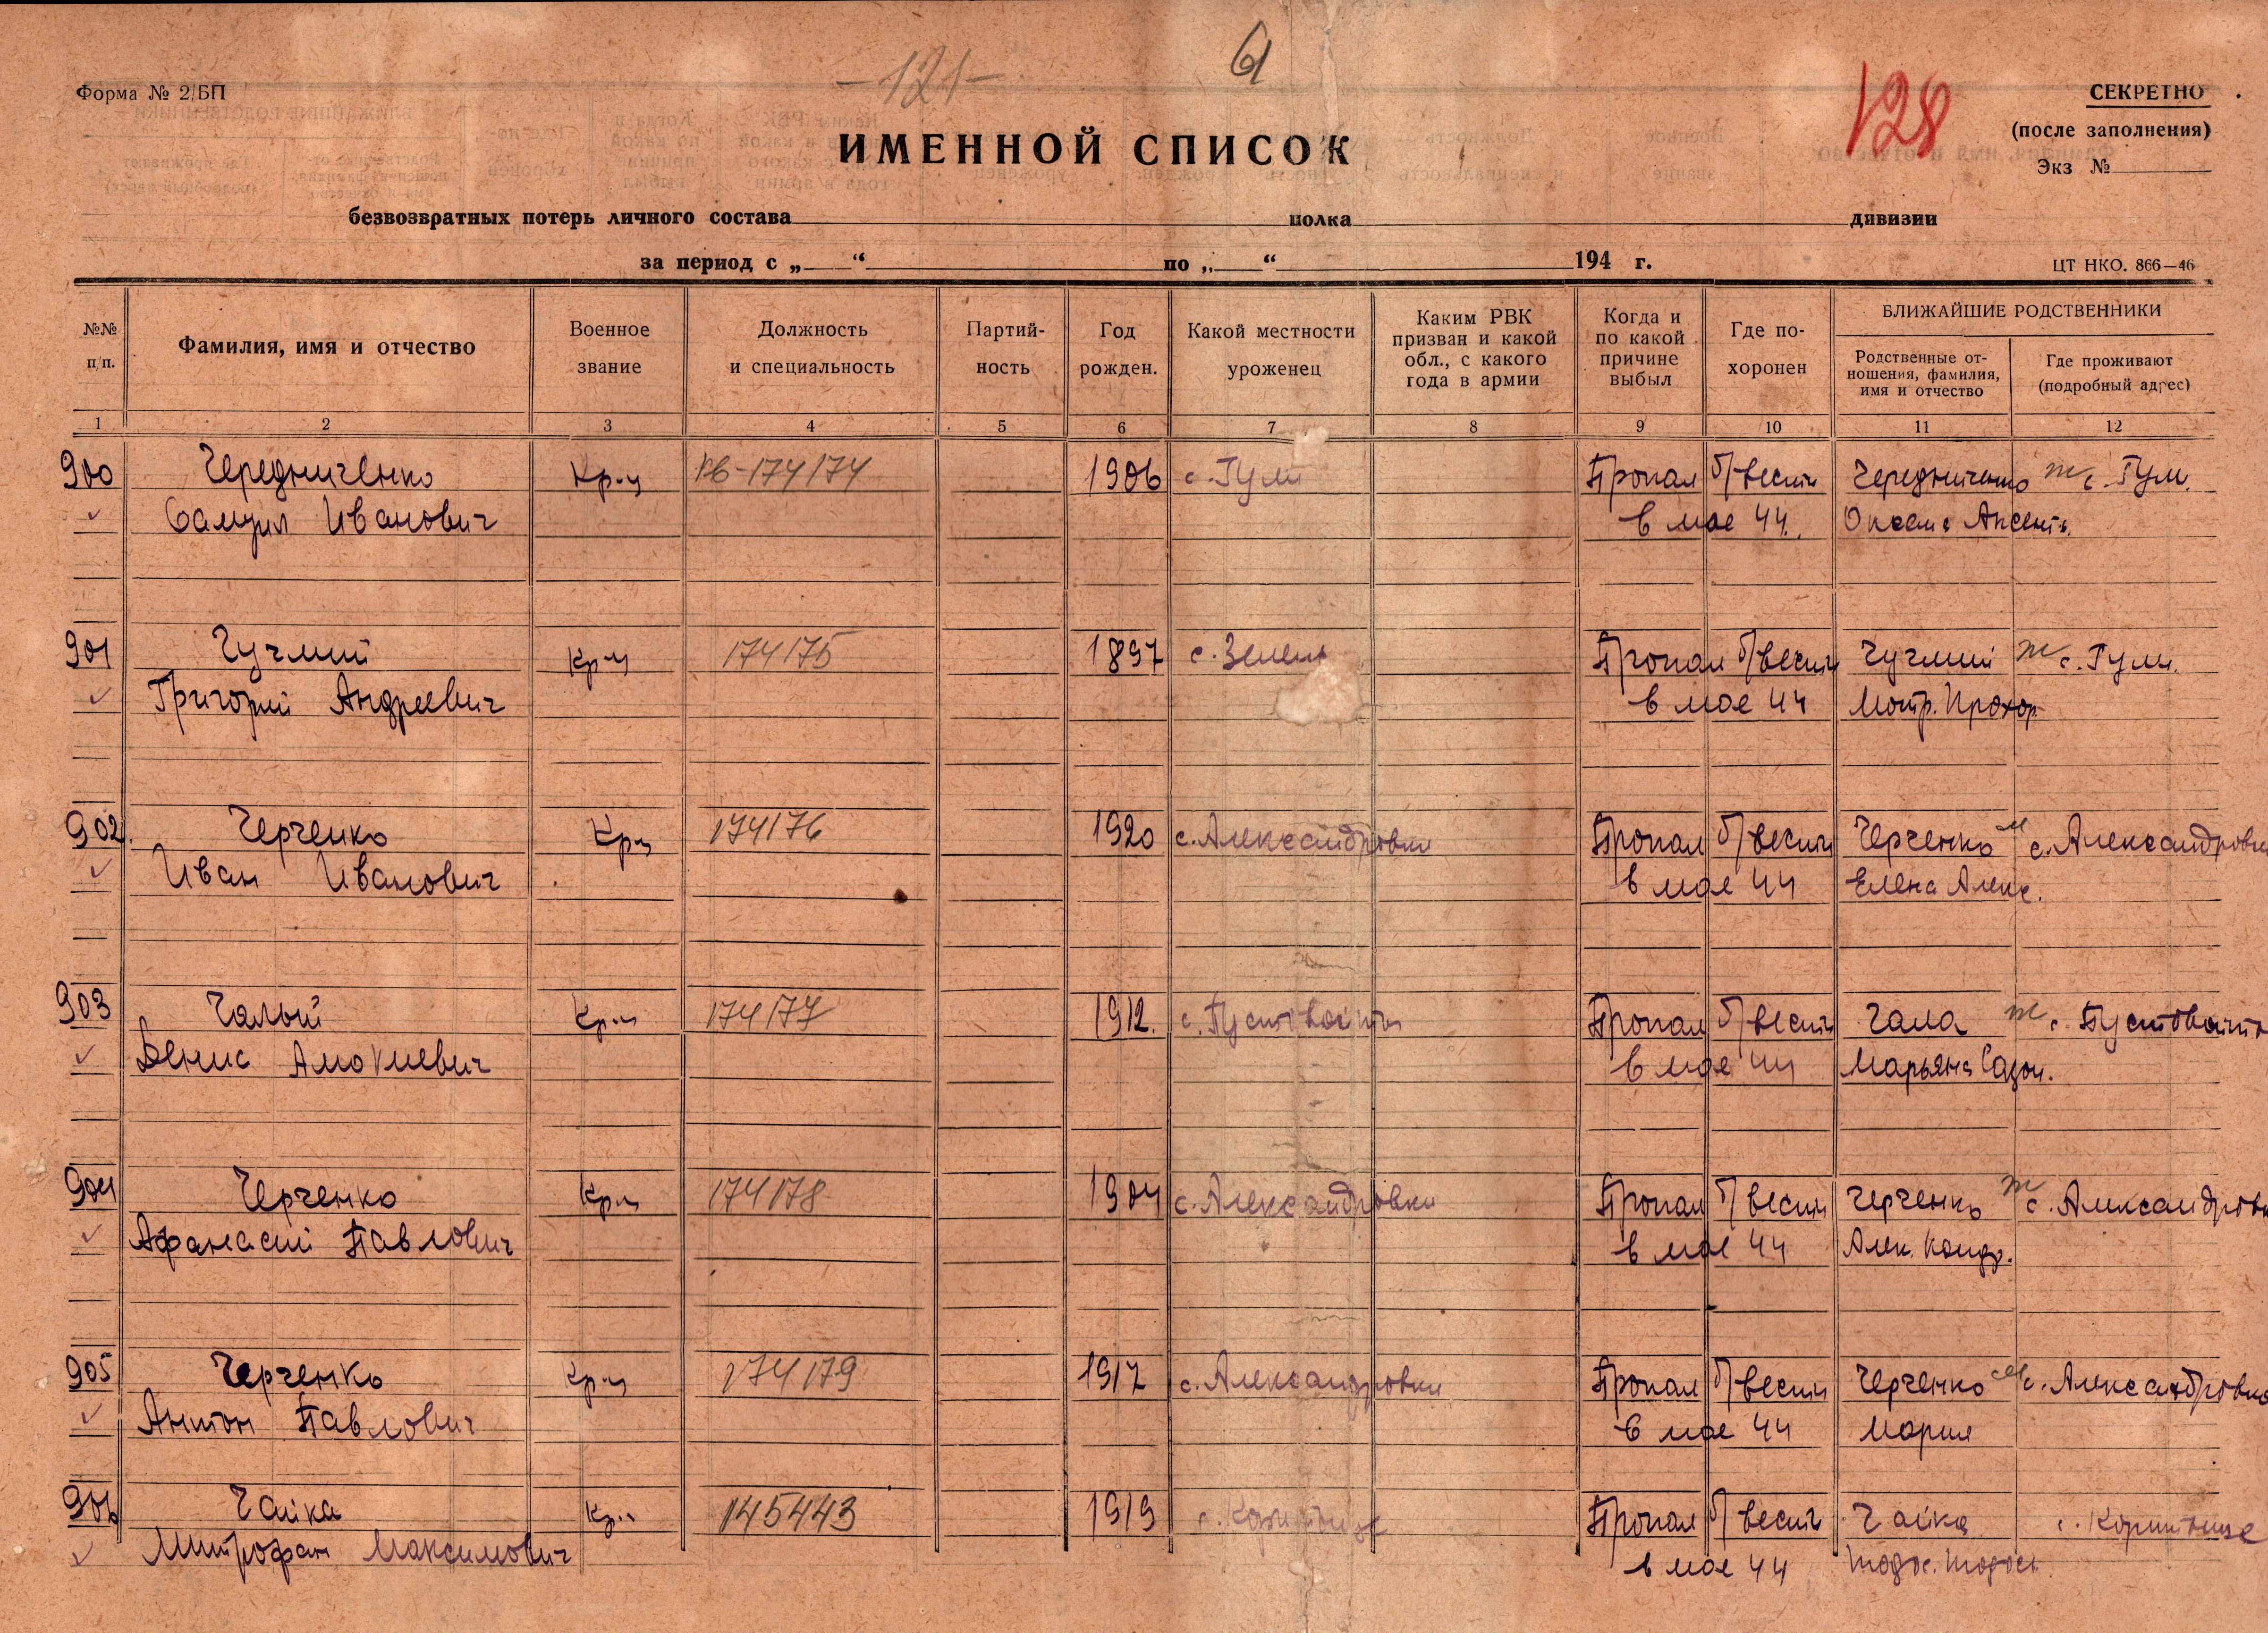 -121-
61
128
Форма № 2/БП
СЕКРЕТНО
(после заполнения)
Экз №
ИМЕННОЙ СПИСОК
безвозвратных потерь личного состава полка дивизии
за период с „ “ по „ “ 194 г.
ЦТ НКО. 866—46
№№ п/п. Фамилия, имя и отчество Военное звание Должность и специальность Партий-ность Год рожден. Какой местности уроженец Каким РВК призван и какой обл., с какого года в армии Когда и по какой причине выбыл Где по-хоронен БЛИЖАЙШИЕ РОДСТВЕННИКИ
Родственные от-ношения, фамилия, имя и отчество Где проживают (подробный адрес)
1 2 3 4 5 6 7 8 9 10 11 12
900 Чередниченко Кр-ц 174174 1906 с. Гули Пропал б/вести Чередниченко ж с. Гули.
Самуил Иванович в мае 44. Аксент.
901 Чучмий Кр-ц 174175 1897 с. Зелен Пропал б/вести Чучмий ж с. Гули.
Григорий Андреевич в мае 44 Мотр. Прохор.
902. Черченко Кр-ц 174176 1920 с. Александровки Пропал б/вести Черченко м с. Александровки
Иван Иванович в мае 44 Елена Алекс.
903 Чалый Кр-ц 174177 1912. с. Пустовойты Пропал б/вести Чала ж с. Пустовойты
Денис в мае 44 Марьяна Сазон.
904 Черченко Кр-ц 174178 1904 с. Александровки Пропал б/вести Черченко ж с. Александровки
Афанасий Павлович в мае 44 Алек. Кондр.
905 Черченко Кр-ц 174179 1917 с. Александровки Пропал б/вести Черченко м с. Александровка
Антон Павлович в мае 44 Мария
906 Чайка Кр-ц 145443 1919 с. Пропал б/вести Чайка с.
Митрофан Максимович в мае 44 Тодос. Тодос.